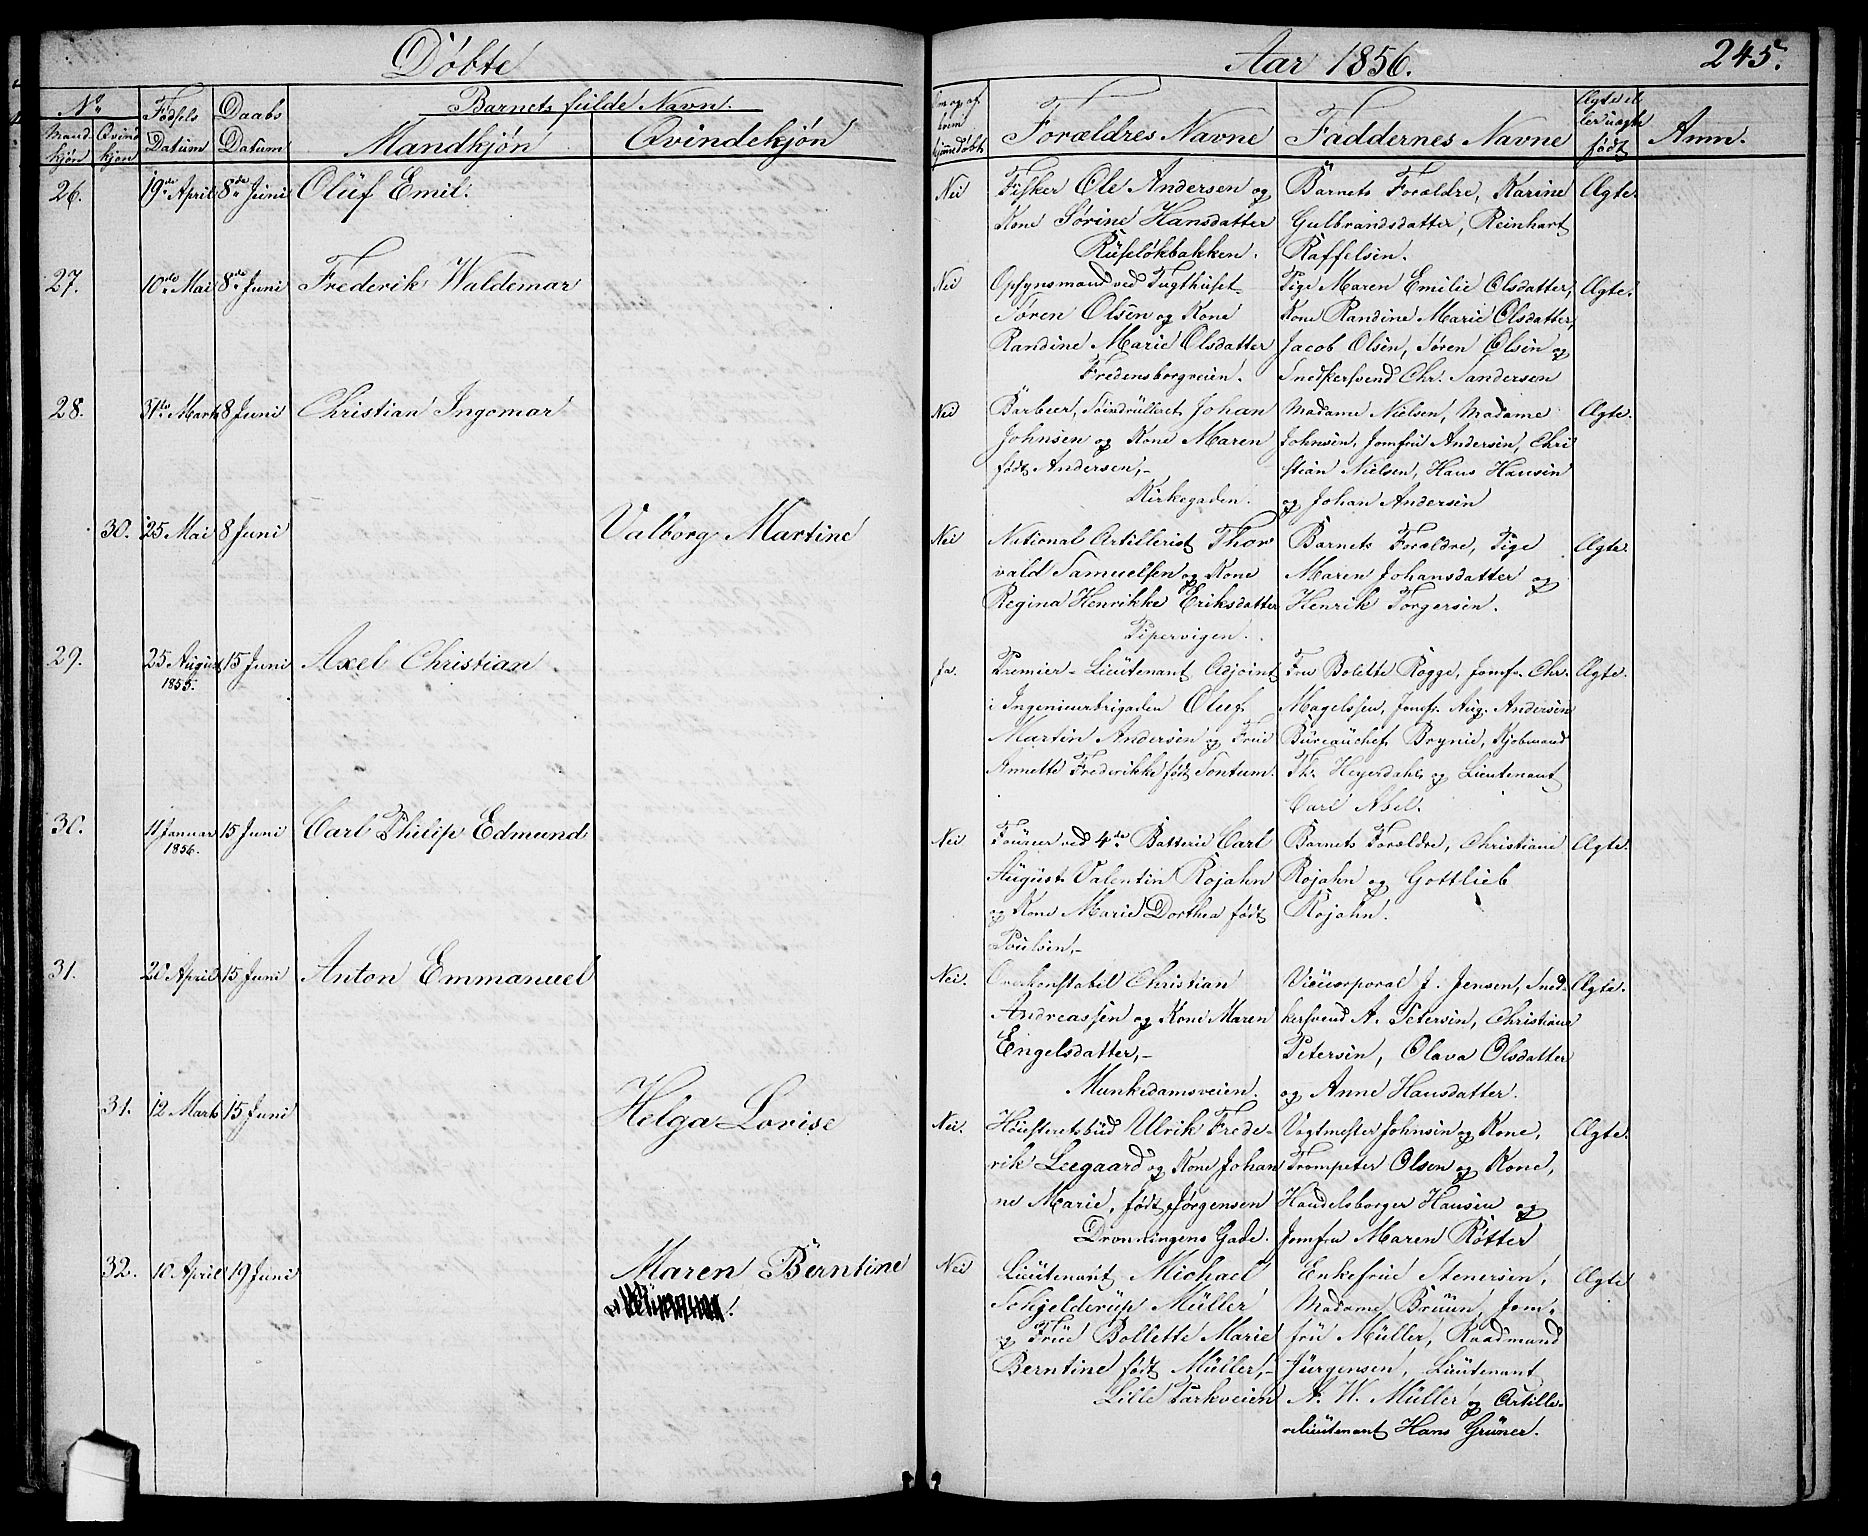 Døbte
Aar 1856.
245.
No
Mandkjøn
Qvindkjøn
Fødsels Datum
Daabs Datum
Barnets fulde Navn.
Mandkjøn
Qvindekjøn
hjemmedøbt
Forældres Navne
Faddernes Navne
Ægte eller uægte født
Anm.
26. 19de April 8de Juni Oluf Emil.
Nei Fisker Ole Andersen og
Kone Sørine Hansdatter
Ruseløkbakken.
Barnets Forældre, Karine
Gulbrandsdatter, Reinhart
Raffelsen.
Ægte.
27. 10de Mai 8de Juni Frederik Waldemar
Nei Opsynsmand ved Tugthuset
Søren Olsen og Kone
Randine Marie Olsdatter
Fredensborgveien.
Pige Maren Emilie Olsdatter,
Kone Randine Marie Olsdatter,
Jacob Olsen, Søren Olsen og
Snedkersvend Chr. Sandersen
Ægte.
28. 31te Marts 8 Juni Christian Ingomar
Nei Barbeer, Johan
Johnsen og Kone Maren
født Andersen,-
Kirkegaden.
Madame Nielsen, Madame
Johnsen, Jomfru Andersen, Chri
stian Nielsen, Hans Hansen
og Johan Andersen
Ægte.
30. 25 Mai 8 Juni Valborg Martine
Nei National Artillerist Thor
vald Samuelsen og Kone
Regina Henrikke Eriksdatter
Pipervigen.
Barnets Forældre, Pige
Maren Johansdatter og
Henrik Torgersen.
Ægte.
29. 25 August 1855. 15 Juni Axel Christian
Ja. Premier-Lieutenant Adjoint
i Ingenieurbrigaden Oluf
Martin Andersen og Frue
Annette Frederikke født Tontum.
Fru Bolette Rogge, Jomfr. Chr.
Magelssen, Jomfr. Aug. Andersen
Bureauchef Brynie, Kjøbmand
Th. Heyerdahl og Lieutenant
Carl Abel.
Ægte.
30. 11 Januar 1856. 15 Juni Carl Philip Edmund
Nei Fourier ved 4de Batterie Carl
August Valentin Rojahn
og Kone Marie Dorthea født
Poulsen,-
Barnets Forældre, Christiane
Rojahn og Gottlieb
Rojahn.
Ægte.
31. 20 April 15 Juni Anton Emmanuel
Nei. Overkonstabel Christian
Andreassen og Kone Maren
Engelsdatter,-
Munkedamsveien.
Vicecorporal J. Jensen, Sned-
kersvend A. Petersen, Christiane
Petersen, Olava Olsdatter
og Anne Hansdatter.
Ægte.
31. 12 Marts 15 Juni Helga Lovise
Nei. Høiesteretsbud Ulrik Frede-
rik Leegaard og Kone Johan
ne Marie, født Jørgensen
Dronningens Gade.
Vagtmester Johnsen og Kone,
Trompeter Olsen og Kone,
Handelsborger Hansen og
Jomfru Maren Røtter
Ægte.
32. 10 April 19 Juni Maren Berntine
Nei Lieutenant Michael
Schjelderup Müller
og Frue Bollette Marie
Berntine født Müller,-
Lille Parkveien
Enkefrue Stenersen,
Madame Bruun, Jom-
fru Müller, Raadmand
Jürgensen, Lieutenant
A. W. Müller og Artille-
rielieutenant Hans Grüner.
Ægte